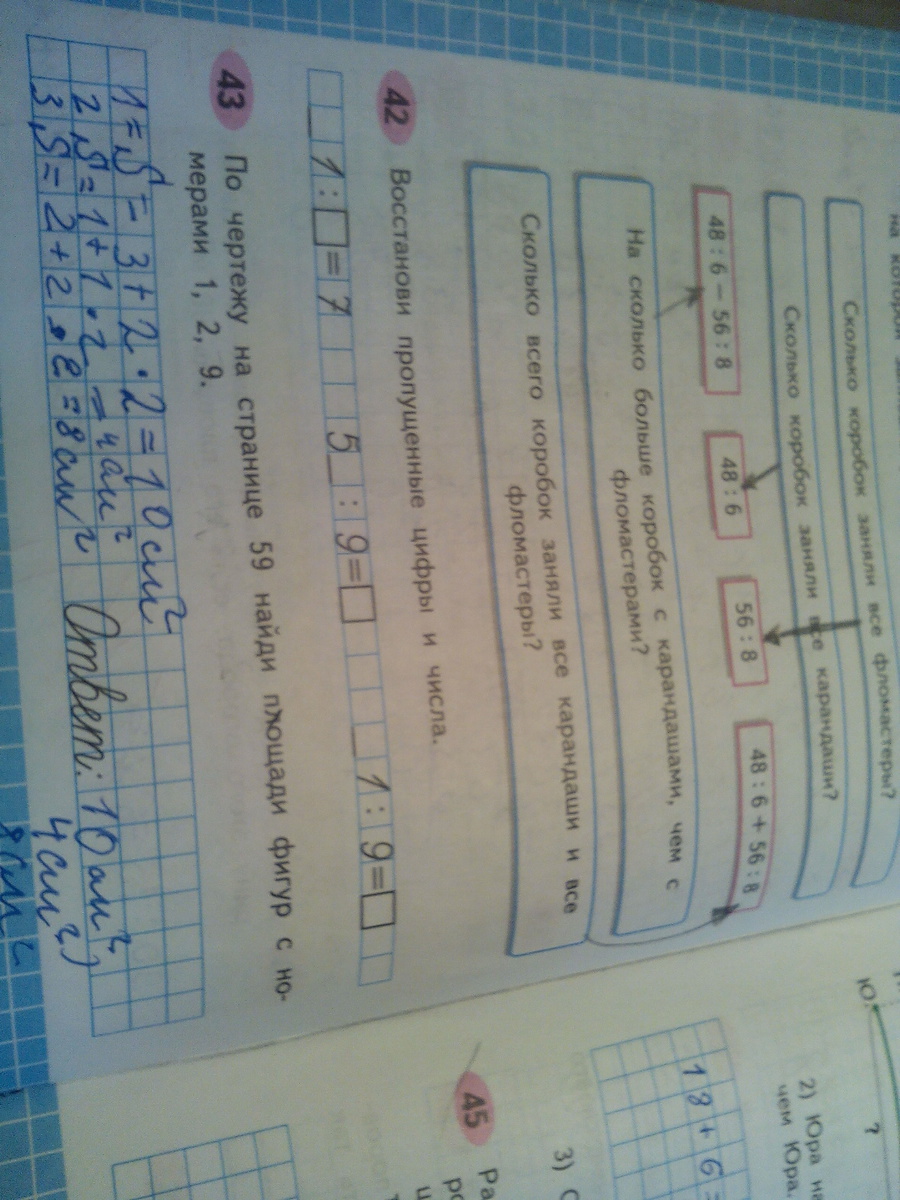 на которой
Сколько коробок заняли все фломастеры?
Сколько коробок заняли все карандаши?
48 : 6 – 56 : 8 48 : 6 56 : 8 48 : 6 + 56 : 8
На сколько больше коробок с карандашами, чем с
фломастерами?
Сколько всего коробок заняли все карандаши и все
фломастеры?
42 Восстанови пропущенные цифры и числа.
_1 : □ = 7 5_ : 9 = □ _1 : 9 = □
43 По чертежу на странице 59 найди площади фигур с но-
мерами 1, 2, 9.
1 = S = 3 + 2 · 2 = 10 см²
2, S = 1 + 1 · 2 = 4 см²
3, S = 2 + 2 · 2 = 8 см²
Ответ: 10 см²,
4 см²,
8 см²
Ю.
?
2) Юра н
чем Юра
18 + 6
3) С
45 Ра